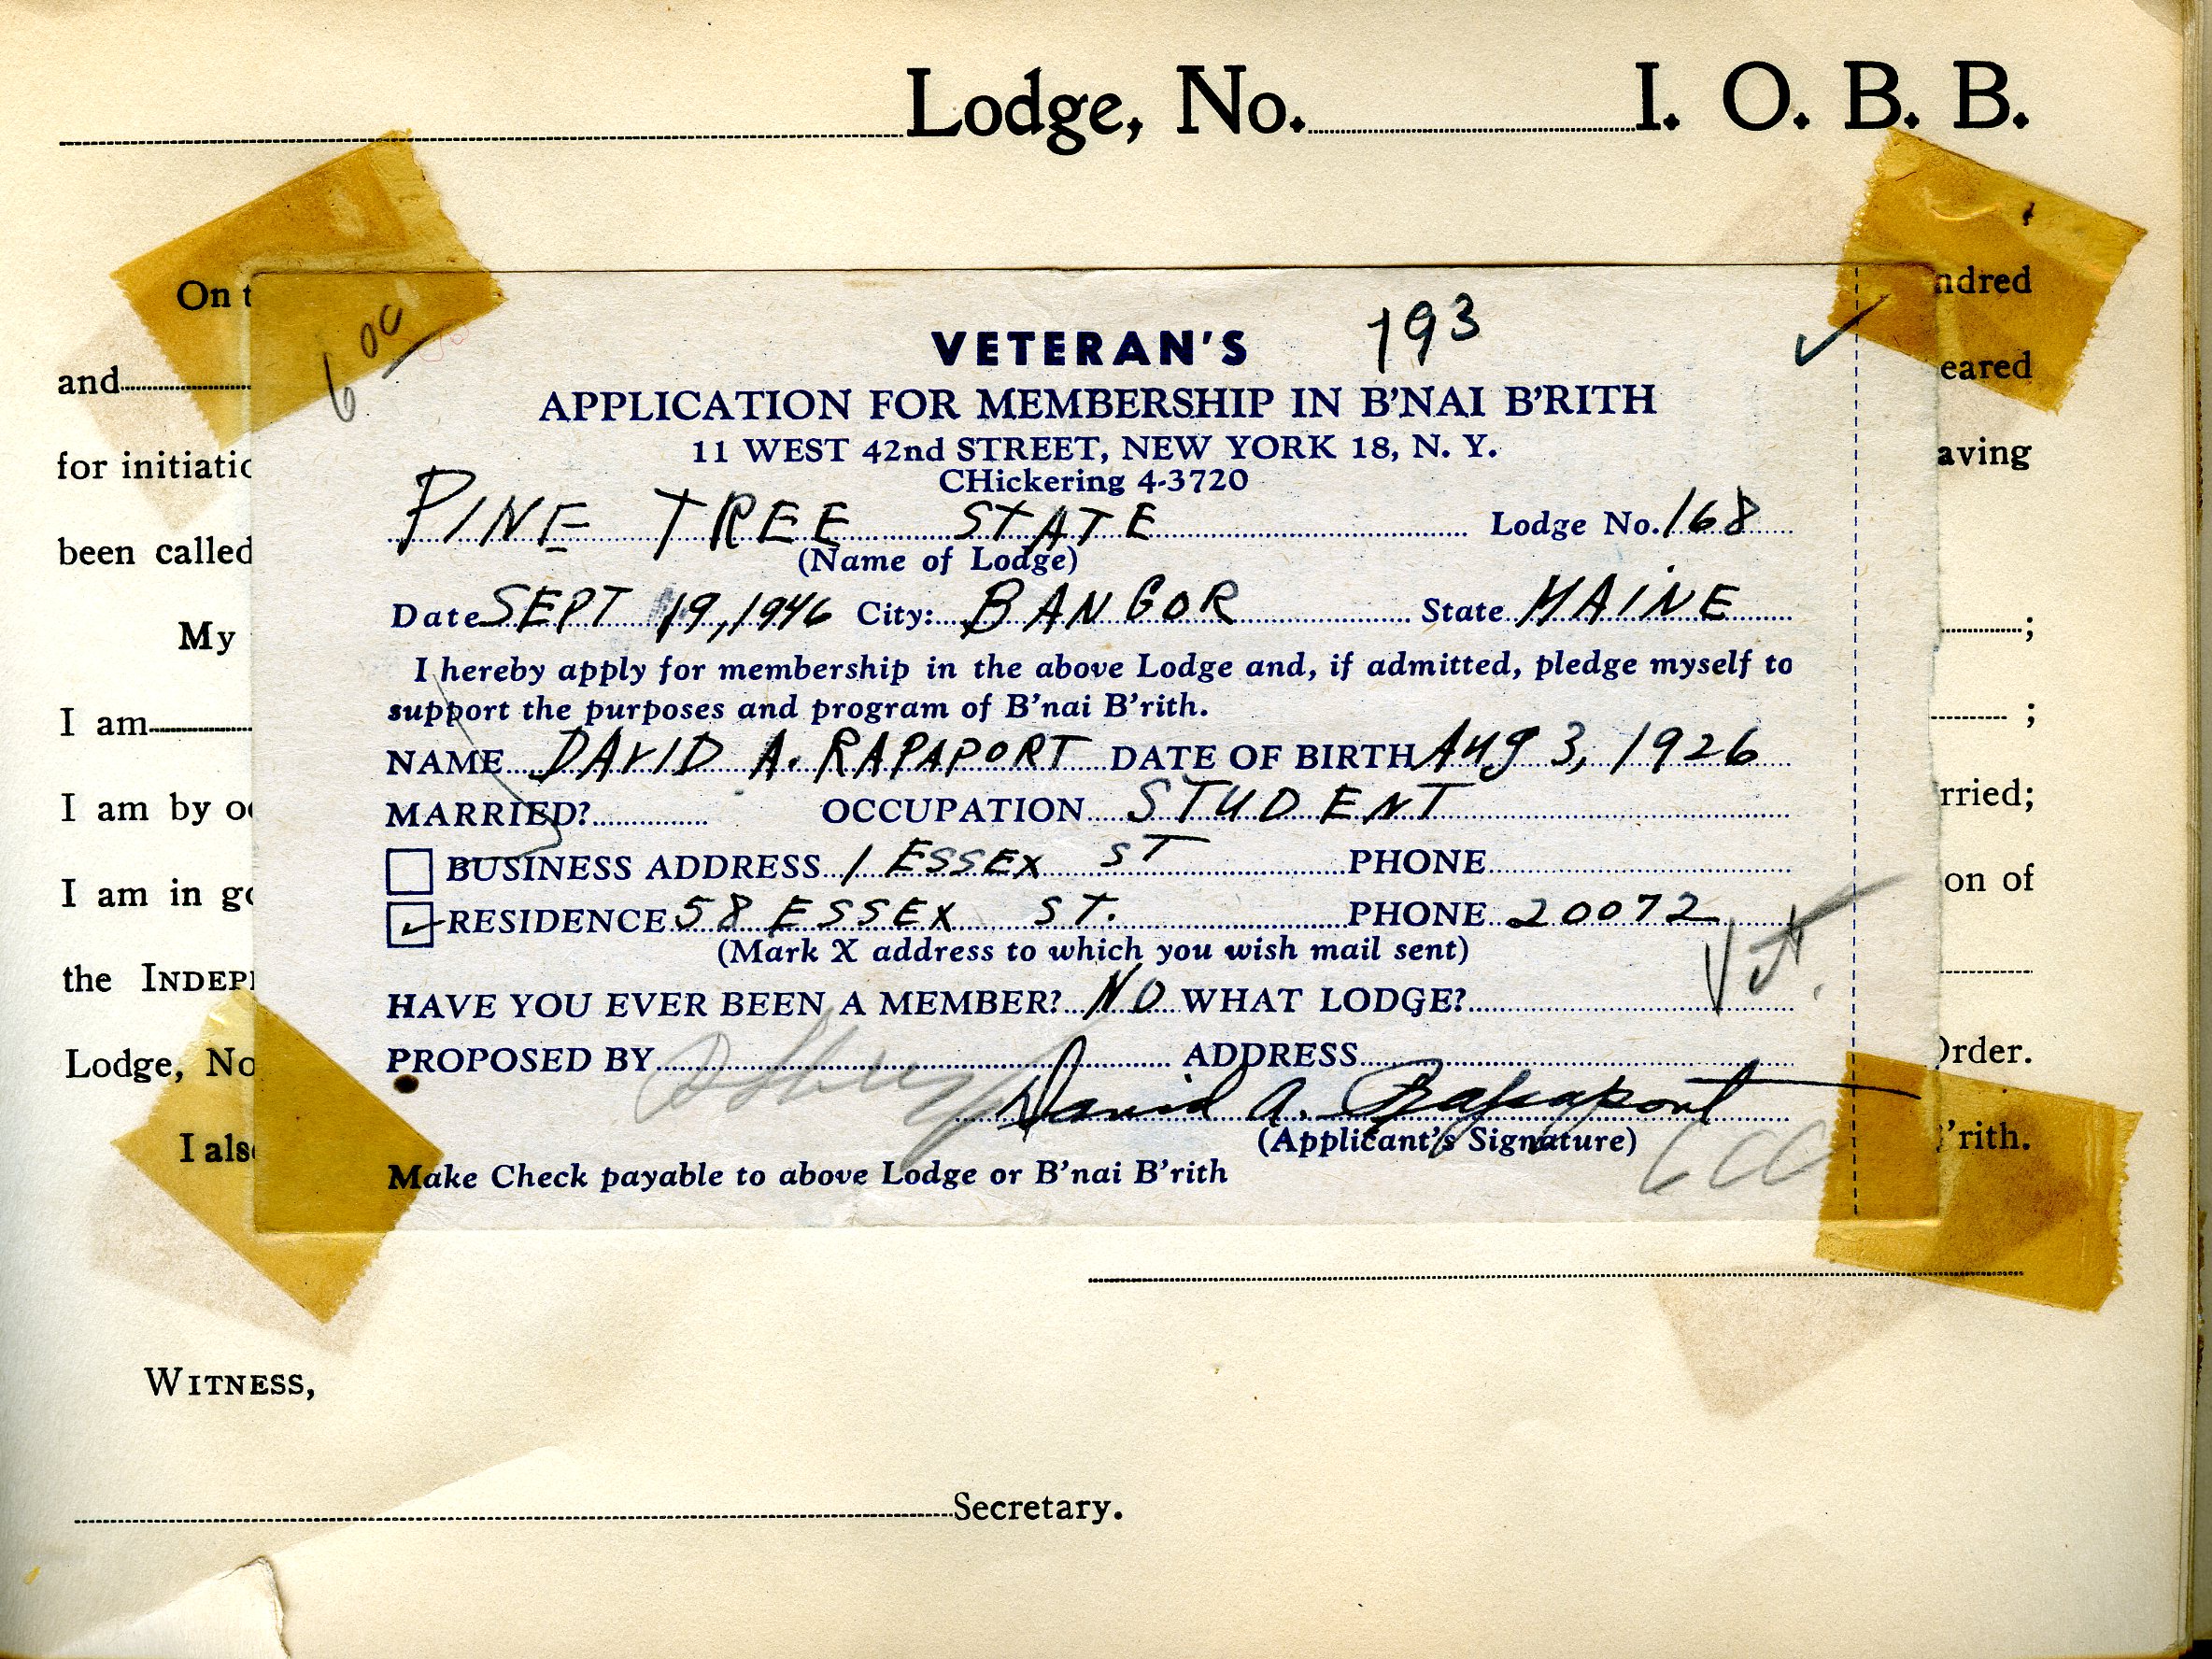 Lodge, No. I. O. B. B.
On t ndred
6 00
193
VETERAN'S
and eared
APPLICATION FOR MEMBERSHIP IN B'NAI B'RITH
11 WEST 42nd STREET, NEW YORK 18, N. Y.
for initiatio aving
CHickering 4-3720
PINE TREE STATE Lodge No. 168
been called (Name of Lodge)
Date SEPT 19, 1946 City: BANGOR State MAINE
My ;
I hereby apply for membership in the above Lodge and, if admitted, pledge myself to
support the purposes and program of B'nai B'rith.
I am ;
NAME DAVID A. RAPAPORT DATE OF BIRTH AUG 3, 1926
I am by oc rried;
MARRIED? OCCUPATION STUDENT
BUSINESS ADDRESS 1 ESSEX ST PHONE
I am in go on of
RESIDENCE 58 ESSEX ST. PHONE 20072
(Mark X address to which you wish mail sent)
the INDEP
HAVE YOU EVER BEEN A MEMBER? NO WHAT LODGE?
Lodge, No Order.
PROPOSED BY ADDRESS
David A. Rapaport
I als 'rith.
(Applicant's Signature)
Make Check payable to above Lodge or B'nai B'rith
WITNESS,
Secretary.